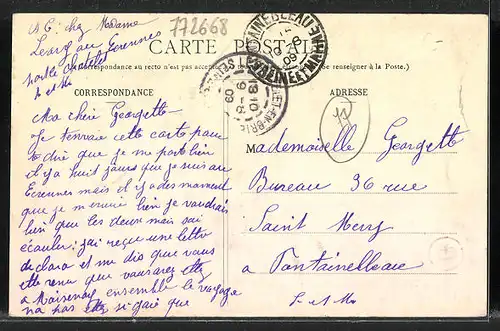 A C. chez Madame
772668
Lesage au Ecrennes
par le Chatelet
S et M
CARTE POSTALE
(La Correspondance au recto n'est pas acceptée se renseigner à la Poste.)
FONTAINEBLEAU
SEINE ET MARNE
09
13-10
9-8
09
CORRESPONDANCE
Ma chère Georgette
Je t'envoie cette carte pour
te dire que je me porte bien
il y a huit jours que je suis au
Ecrennes mais il y a des moment
que je m'ennuie bien je voudrais
bien que les deux mois soi
écouler; j'ai reçue une lettre
de clara et me dis que vous
ette venu que vous avez etté
a ensemble le voyage
na pas etté si gaie que
ADRESSE
Mademoiselle Georgette
Bureau 36 rue
Saint Merry
a Fontainebleau
S-et-M